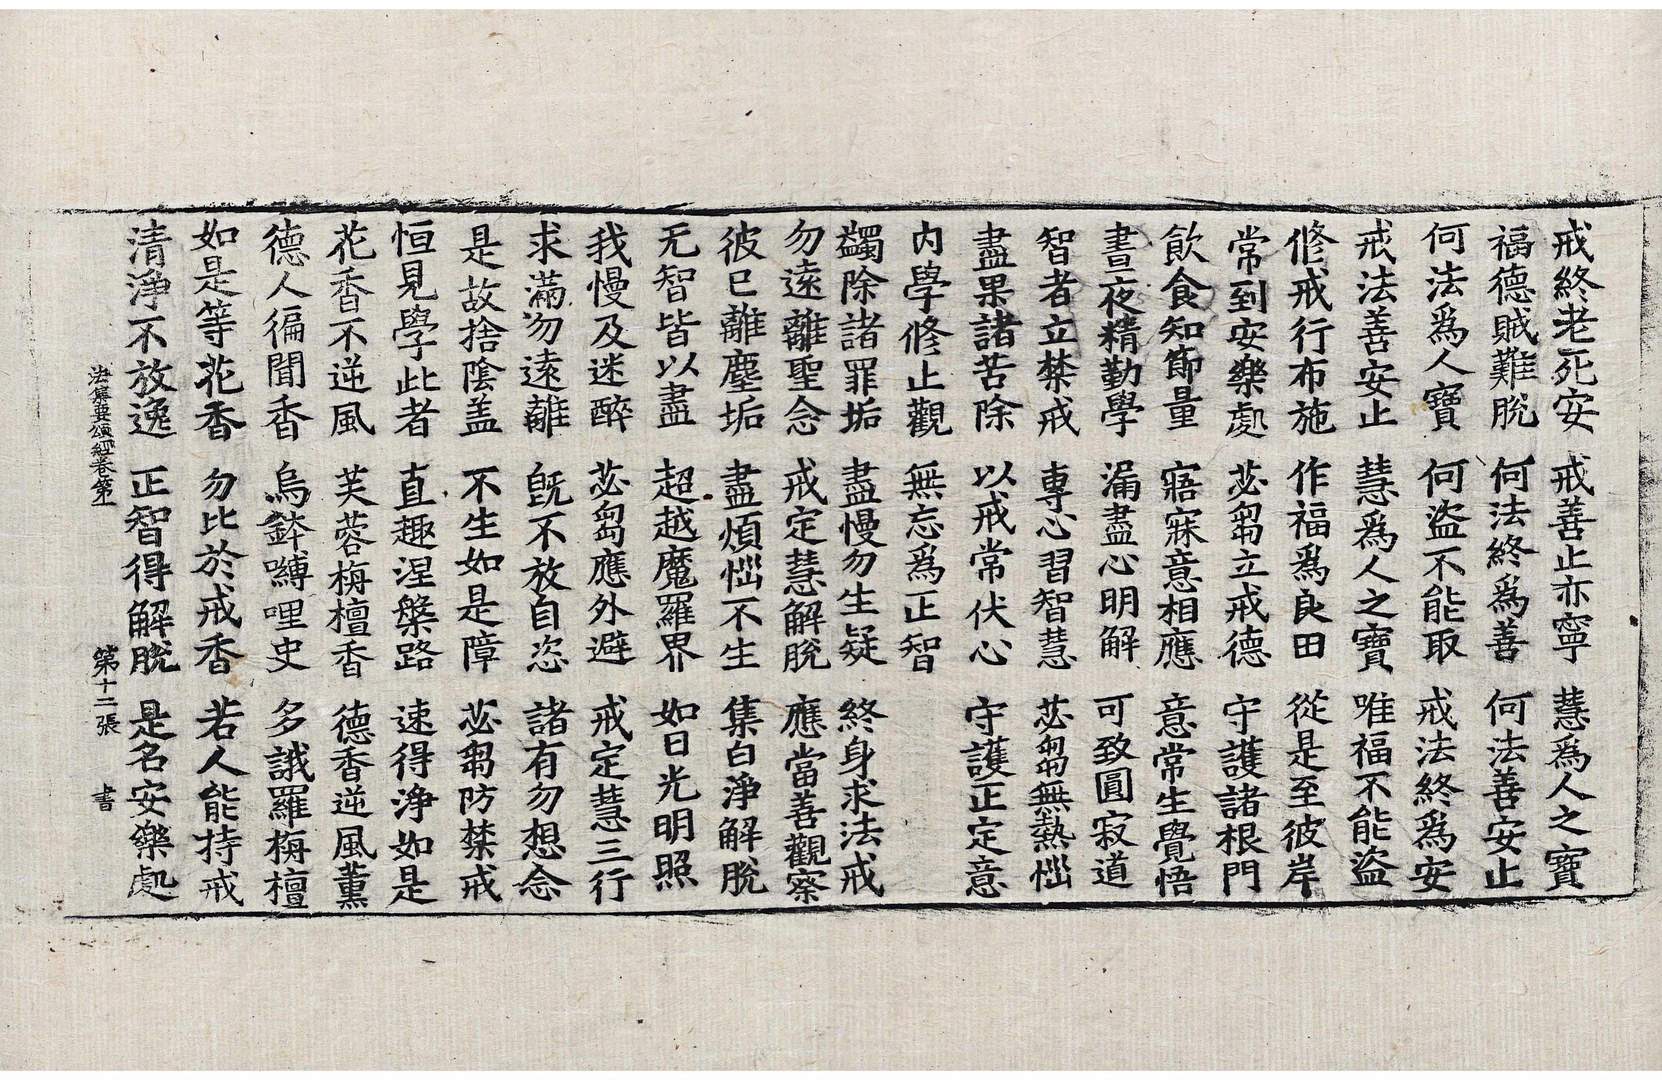 戒終老死安　戒善止亦寧　慧爲人之寶
福德賊難脫　何法終爲善　何法善安止
何法爲人寶　何盜不能取　戒法終爲安
戒法善安止　慧爲人之寶　唯福不能盜
修戒行布施　作福爲良田　從是至彼岸
常到安樂處　苾芻立戒德　守護諸根門
飲食知節量　寤寐意相應　意常生覺悟
晝夜精勤學　漏盡心明解　可致圓寂道
智者立禁戒　專心習智慧　苾芻無熱惱
盡果諸苦除　以戒常伏心　守護正定意
内學修止觀　無忘爲正智
蠲除諸罪垢　盡慢勿生疑　終身求法戒
勿遠離聖念　戒定慧解脫　應當善觀察
彼已離塵垢　盡煩惱不生　集白淨解脫
无智皆以盡　超越魔羅界　如日光明照
我慢及迷醉　苾芻應外避　戒定慧三行
求滿勿遠離　旣不放自恣　諸有勿想念
是故捨陰盖　不生如是障　苾芻防禁戒
恒見學此者　直趣涅槃路　速得淨如是
花香不逆風　芙蓉栴檀香　德香逆風薰
德人徧聞香　烏鉢嚩哩史　多誐羅栴檀
如是等花香　勿比於戒香　若人能持戒
清淨不放逸　正智得解脫　是名安樂處
法集要頌經卷第一　第十二張　書